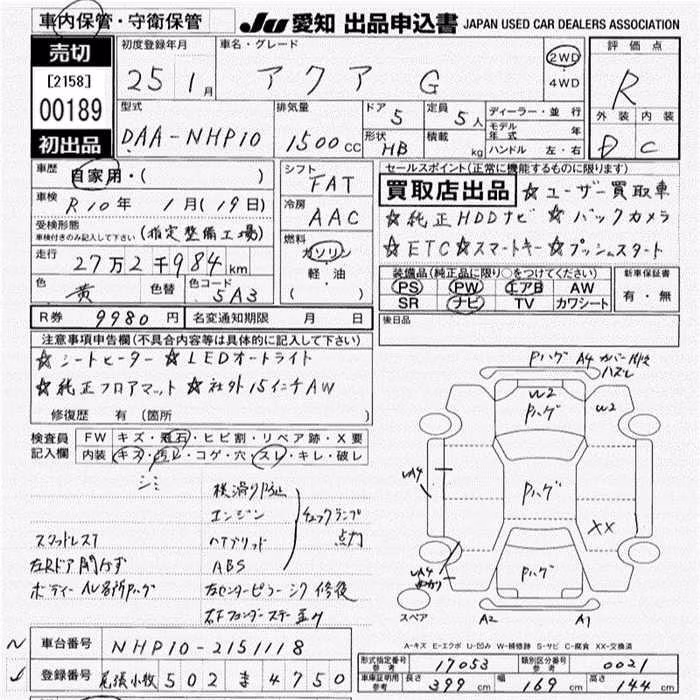 車内保管・守衛保管
JU 愛知 出品申込書 JAPAN USED CAR DEALERS ASSOCIATION
売切
[2158]
00189
初出品
初度登録年月
25 1月
車名・グレード
アクア G
2WD・4WD
評価点
R
外装 内装
D C
型式
DAA-NHP10
排気量
1500 CC
ドア 5
定員 5人
形状 HB
積載 kg
ディーラー・並行
モデル年式 年
ハンドル 左・右
車歴
自家用・( )
車検
R10年 1月(19日)
受検形態
車検付きのみ記入して下さい (指定整備工場)
走行
27万2千984km
色 黄
色替
色コード 5A3
シフト
FAT
冷房
AAC
燃料
ガソリン
軽・油
( )
セールスポイント(正常に機能するものに限ります)
買取店出品 ☆ユーザー買取車
☆純正HDDナビ ☆バックカメラ
☆ETC☆スマートキー☆プッシュスタート
装備品(純正品に限り○をつけてください)
PS PW エアB AW
SR ナビ TV カワシート
新車保証書
有・無
R券 9980円
名変通知期限 月 日
後日品
注意事項申告欄(不具合内容等は具体的に記入して下さい)
☆シートヒーター ☆LEDオートライト
☆純正フロアマット ☆社外15インチAW
修復歴 有 (箇所 )
検査員記入欄
FW キズ・飛石・ヒビ割・リペア跡・X要
内装 キズ・汚レ・コゲ・穴・スレ・キレ・破レ
シミ
横滑り防止
エンジン
ハイブリッド
ABS
チェックランプ点力
スマッドレスT
左Rドア開けず
ボディーAU各所ハゲ
左センターピラーシワ修後
Pハゲ A4 カバー
ハズレ
W2
Pハゲ
W2
UA4
Pハゲ
XX
UA4
Pハゲ
スペア
A2
A1
A-キズ E-エクボ U-凹み W-補修跡 S-サビ C-腐食 XX-交換済
車台番号 NHP10-2151118
登録番号 尾張小牧 502 ま 4750
形式指定番号 参考 17053
類別区分番号 参考 0021
車庫証明用 参考
長さ 399cm
幅 169cm
高さ 144cm